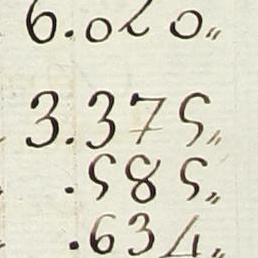 6.020〃
3.375〃
.585〃
.634〃